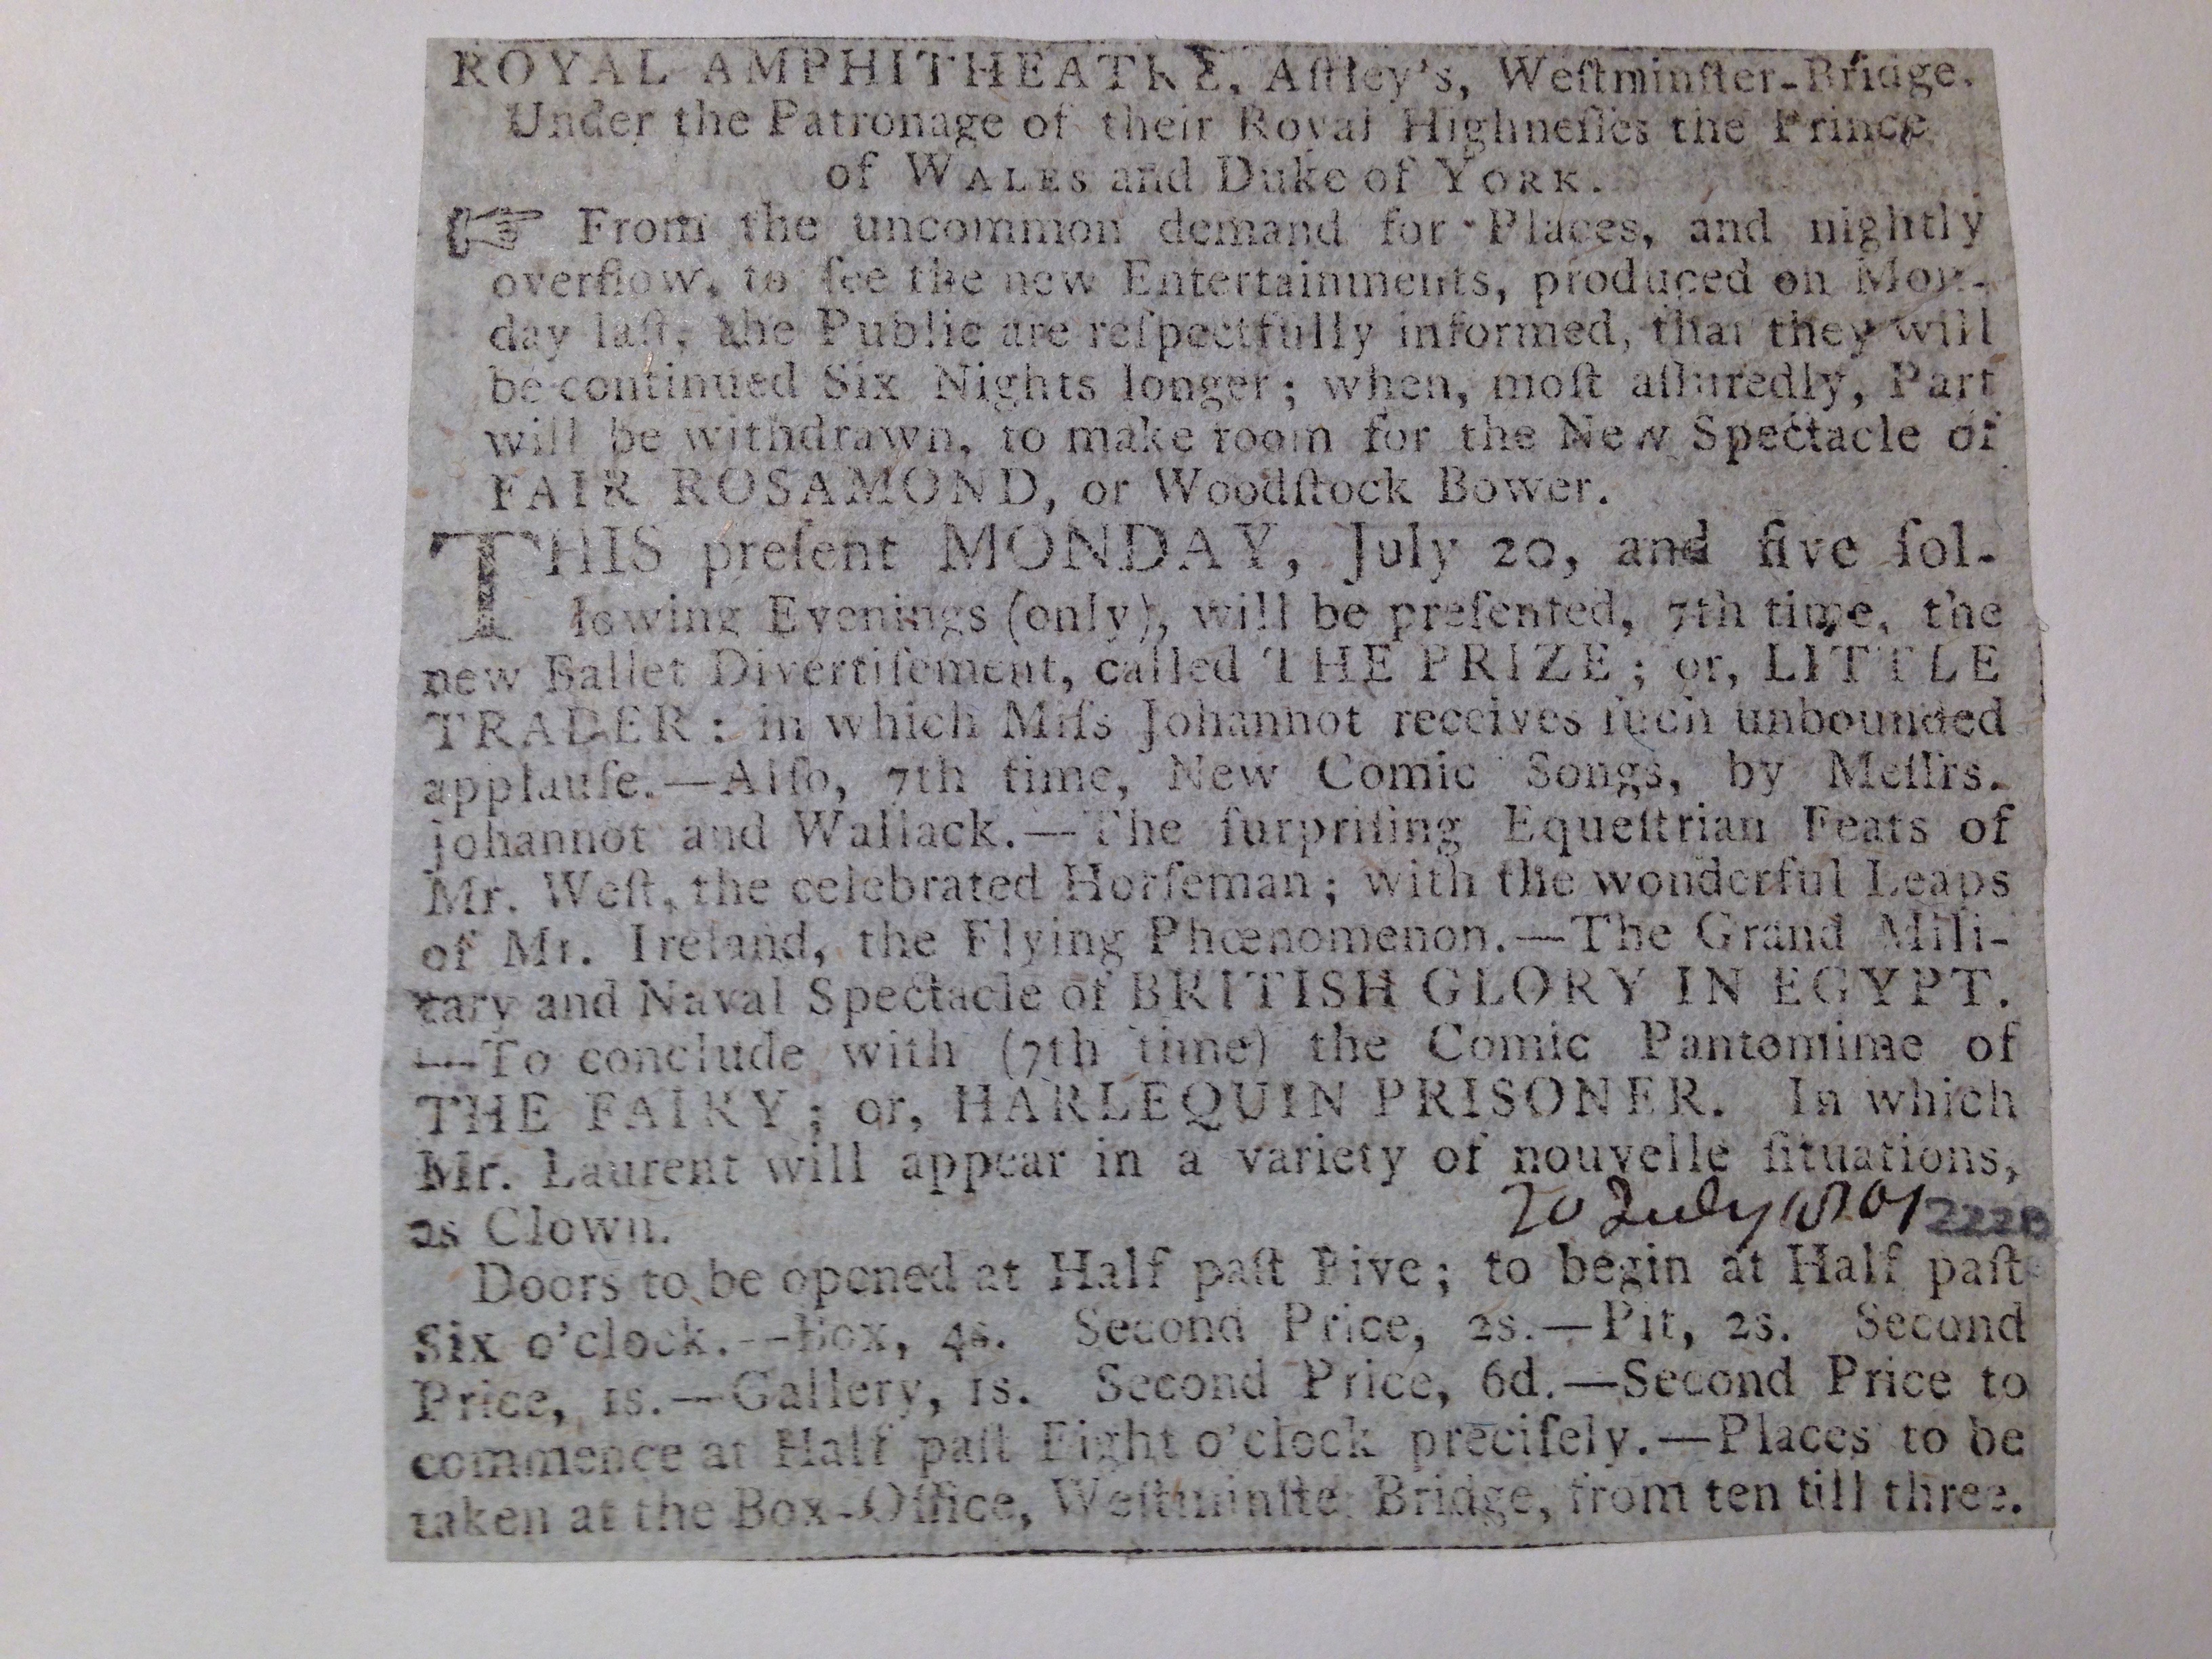 ROYAL AMPHITHEATRE, Aſtley's, Weſtminſter-Bridge.
Under the Patronage of their Royal Highneſſes the Prince
of WALES and Duke of YORK.
☞ From the uncommon demand for Places, and nightly
overflow, to ſee the new Entertainments, produced on Mon-
day laſt, the Public are reſpectfully informed, that they will
be continued Six Nights longer; when, moſt aſſuredly, Part
will be withdrawn, to make room for the New Spectacle of
FAIR ROSAMOND, or Woodſtock Bower.
THIS preſent MONDAY, July 20, and five fol-
lowing Evenings (only), will be preſented, 7th time, the
new Ballet Divertiſement, called THE PRIZE; or, LITTLE
TRADER: in which Miſs Johannot receives ſuch unbounded
applauſe.—Alſo, 7th time, New Comic Songs, by Meſſrs.
Johannot and Wallack.—The ſurpriſing Equeſtrian Feats of
Mr. Weſt, the celebrated Horſeman; with the wonderful Leaps
of Mr. Ireland, the Flying Phœnomenon.—The Grand Mili-
tary and Naval Spectacle of BRITISH GLORY IN EGYPT.
—To conclude with (7th time) the Comic Pantomime of
THE FAIRY; or, HARLEQUIN PRISONER. In which
Mr. Laurent will appear in a variety of nouvelle ſituations,
as Clown.
20 July 1801 222B
Doors to be opened at Half paſt Five; to begin at Half paſt
Six o'clock.--Box, 4s. Second Price, 2s.—Pit, 2s. Second
Price, 1s.—Gallery, 1s. Second Price, 6d.—Second Price to
commence at Half paſt Eight o'clock preciſely.—Places to be
taken at the Box-Office, Weſtminſte Bridge, from ten till three.